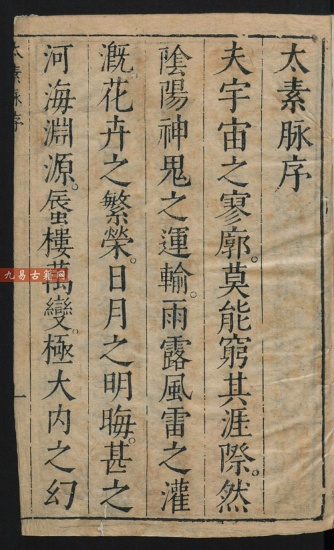 太素脉序
夫宇宙之寥廓。莫能窮其涯際。然
陰陽神鬼之運輸。雨露風雷之灌
溉花卉之繁榮。日月之明晦。甚之
河海淵源。蜃樓萬變。極大内之幻
太素脉序
一
九易古籍网